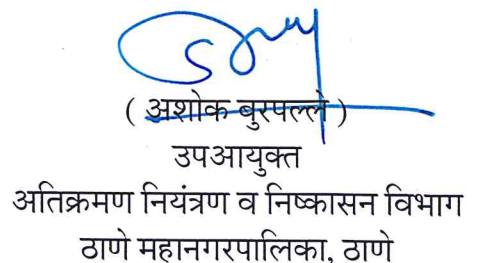 ( अशोक बुरपल्ले )
उपआयुक्त
अतिक्रमण नियंत्रण व निष्कासन विभाग
ठाणे महानगरपालिका, ठाणे